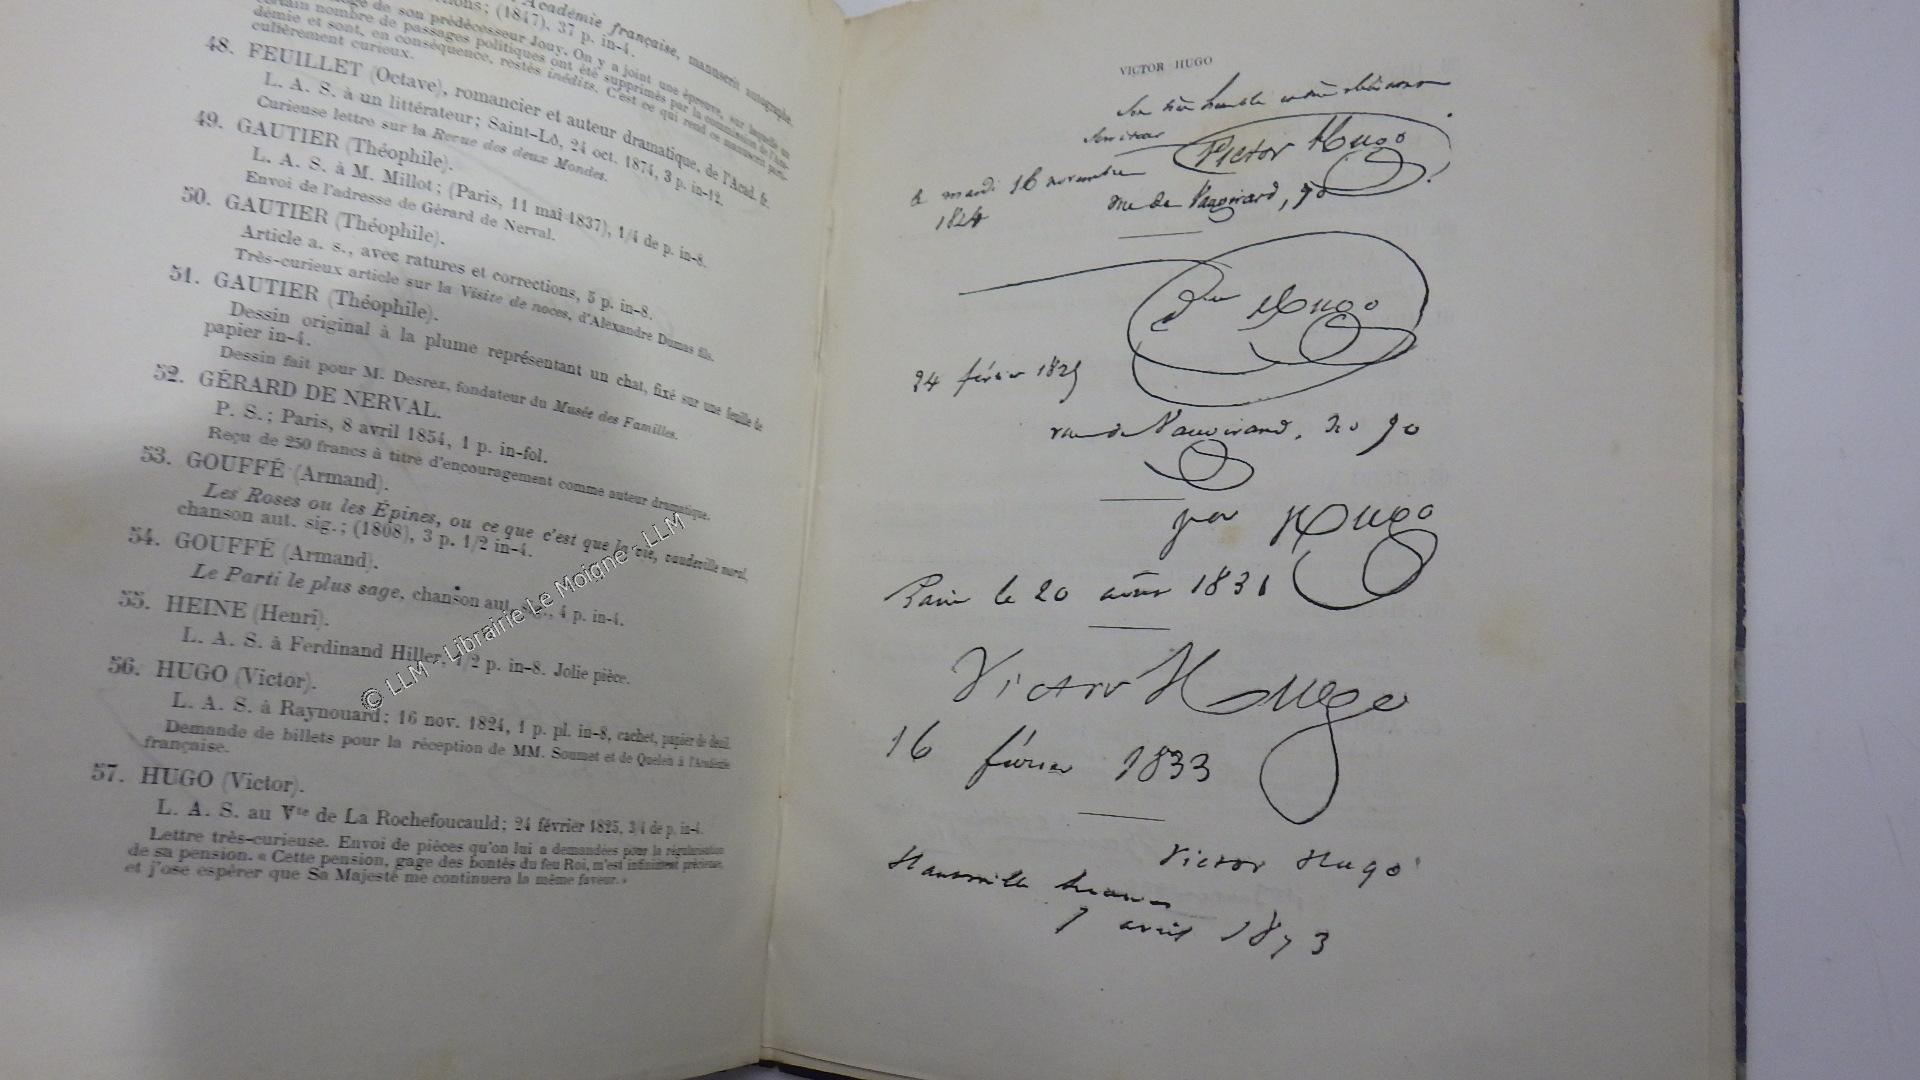 Académie française, manuscrit autographe.
tions; (1847), 37 p. in-4.
de son prédécesseur Jouy. On y a joint une épreuve, sur laquelle un
certain nombre de passages politiques ont été supprimés par la commission de l'Aca-
démie et sont, en conséquence, restés inédits. C'est ce qui rend ce manuscrit parti-
culièrement curieux.
48. FEUILLET (Octave), romancier et auteur dramatique, de l'Acad. fr.
L. A. S. à un littérateur; Saint-Lô, 24 oct. 1874, 3 p. in-12.
Curieuse lettre sur la Revue des deux Mondes.
49. GAUTIER (Théophile).
L. A. S. à M. Millot; (Paris, 11 mai 1837), 1/4 de p. in-8.
Envoi de l'adresse de Gérard de Nerval.
50. GAUTIER (Théophile).
Article a. s., avec ratures et corrections, 5 p. in-8.
Très-curieux article sur la Visite de noces, d'Alexandre Dumas fils.
51. GAUTIER (Théophile).
Dessin original à la plume représentant un chat, fixé sur une feuille de
papier in-4.
Dessin fait pour M. Desrez, fondateur du Musée des Familles.
52. GÉRARD DE NERVAL.
P. S.; Paris, 8 avril 1854, 1 p. in-fol.
Reçu de 250 francs à titre d'encouragement comme auteur dramatique.
53. GOUFFÉ (Armand).
Les Roses ou les Épines, ou ce que c'est que la vie, vaudeville moral,
chanson aut. sig.; (1808), 3 p. 1/2 in-4.
54. GOUFFÉ (Armand).
Le Parti le plus sage, chanson aut. sig., 4 p. in-4.
55. HEINE (Henri).
L. A. S. à Ferdinand Hiller, 1/2 p. in-8. Jolie pièce.
56. HUGO (Victor).
L. A. S. à Raynouard; 16 nov. 1824, 1 p. pl. in-8, cachet, papier de deuil.
Demande de billets pour la réception de MM. Soumet et de Quelen à l'Académie
française.
57. HUGO (Victor).
L. A. S. au Vte de La Rochefoucauld; 24 février 1825, 3/4 de p. in-4.
Lettre très-curieuse. Envoi de pièces qu'on lui a demandées pour la régularisation
de sa pension. « Cette pension, gage des bontés du feu Roi, m'est infiniment précieuse,
et j'ose espérer que Sa Majesté me continuera la même faveur. »
© LLM - Librairie Le Moigne - LLM
VICTOR HUGO
très humble et très obéissant
serviteur
Victor Hugo
le mardi 16 novembre
1824
rue de Vaugirard, 90
Hugo
24 février 1825
rue de Vaugirard, no 90
Hugo
Paris le 20 1831
Victor Hugo
16 février 1833
Victor Hugo
Hauteville house
7 avril 1873